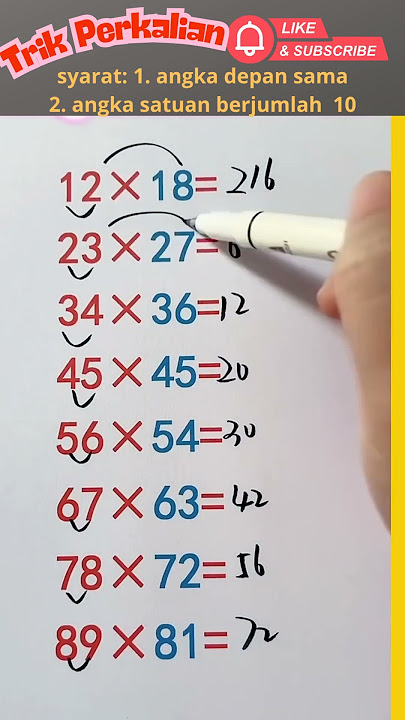 Trik Perkalian
LIKE
& SUBSCRIBE
syarat: 1. angka depan sama
2. angka satuan berjumlah 10
12×18=216
23×27=6
34×36=12
45×45=20
56×54=30
67×63=42
78×72=56
89×81=72